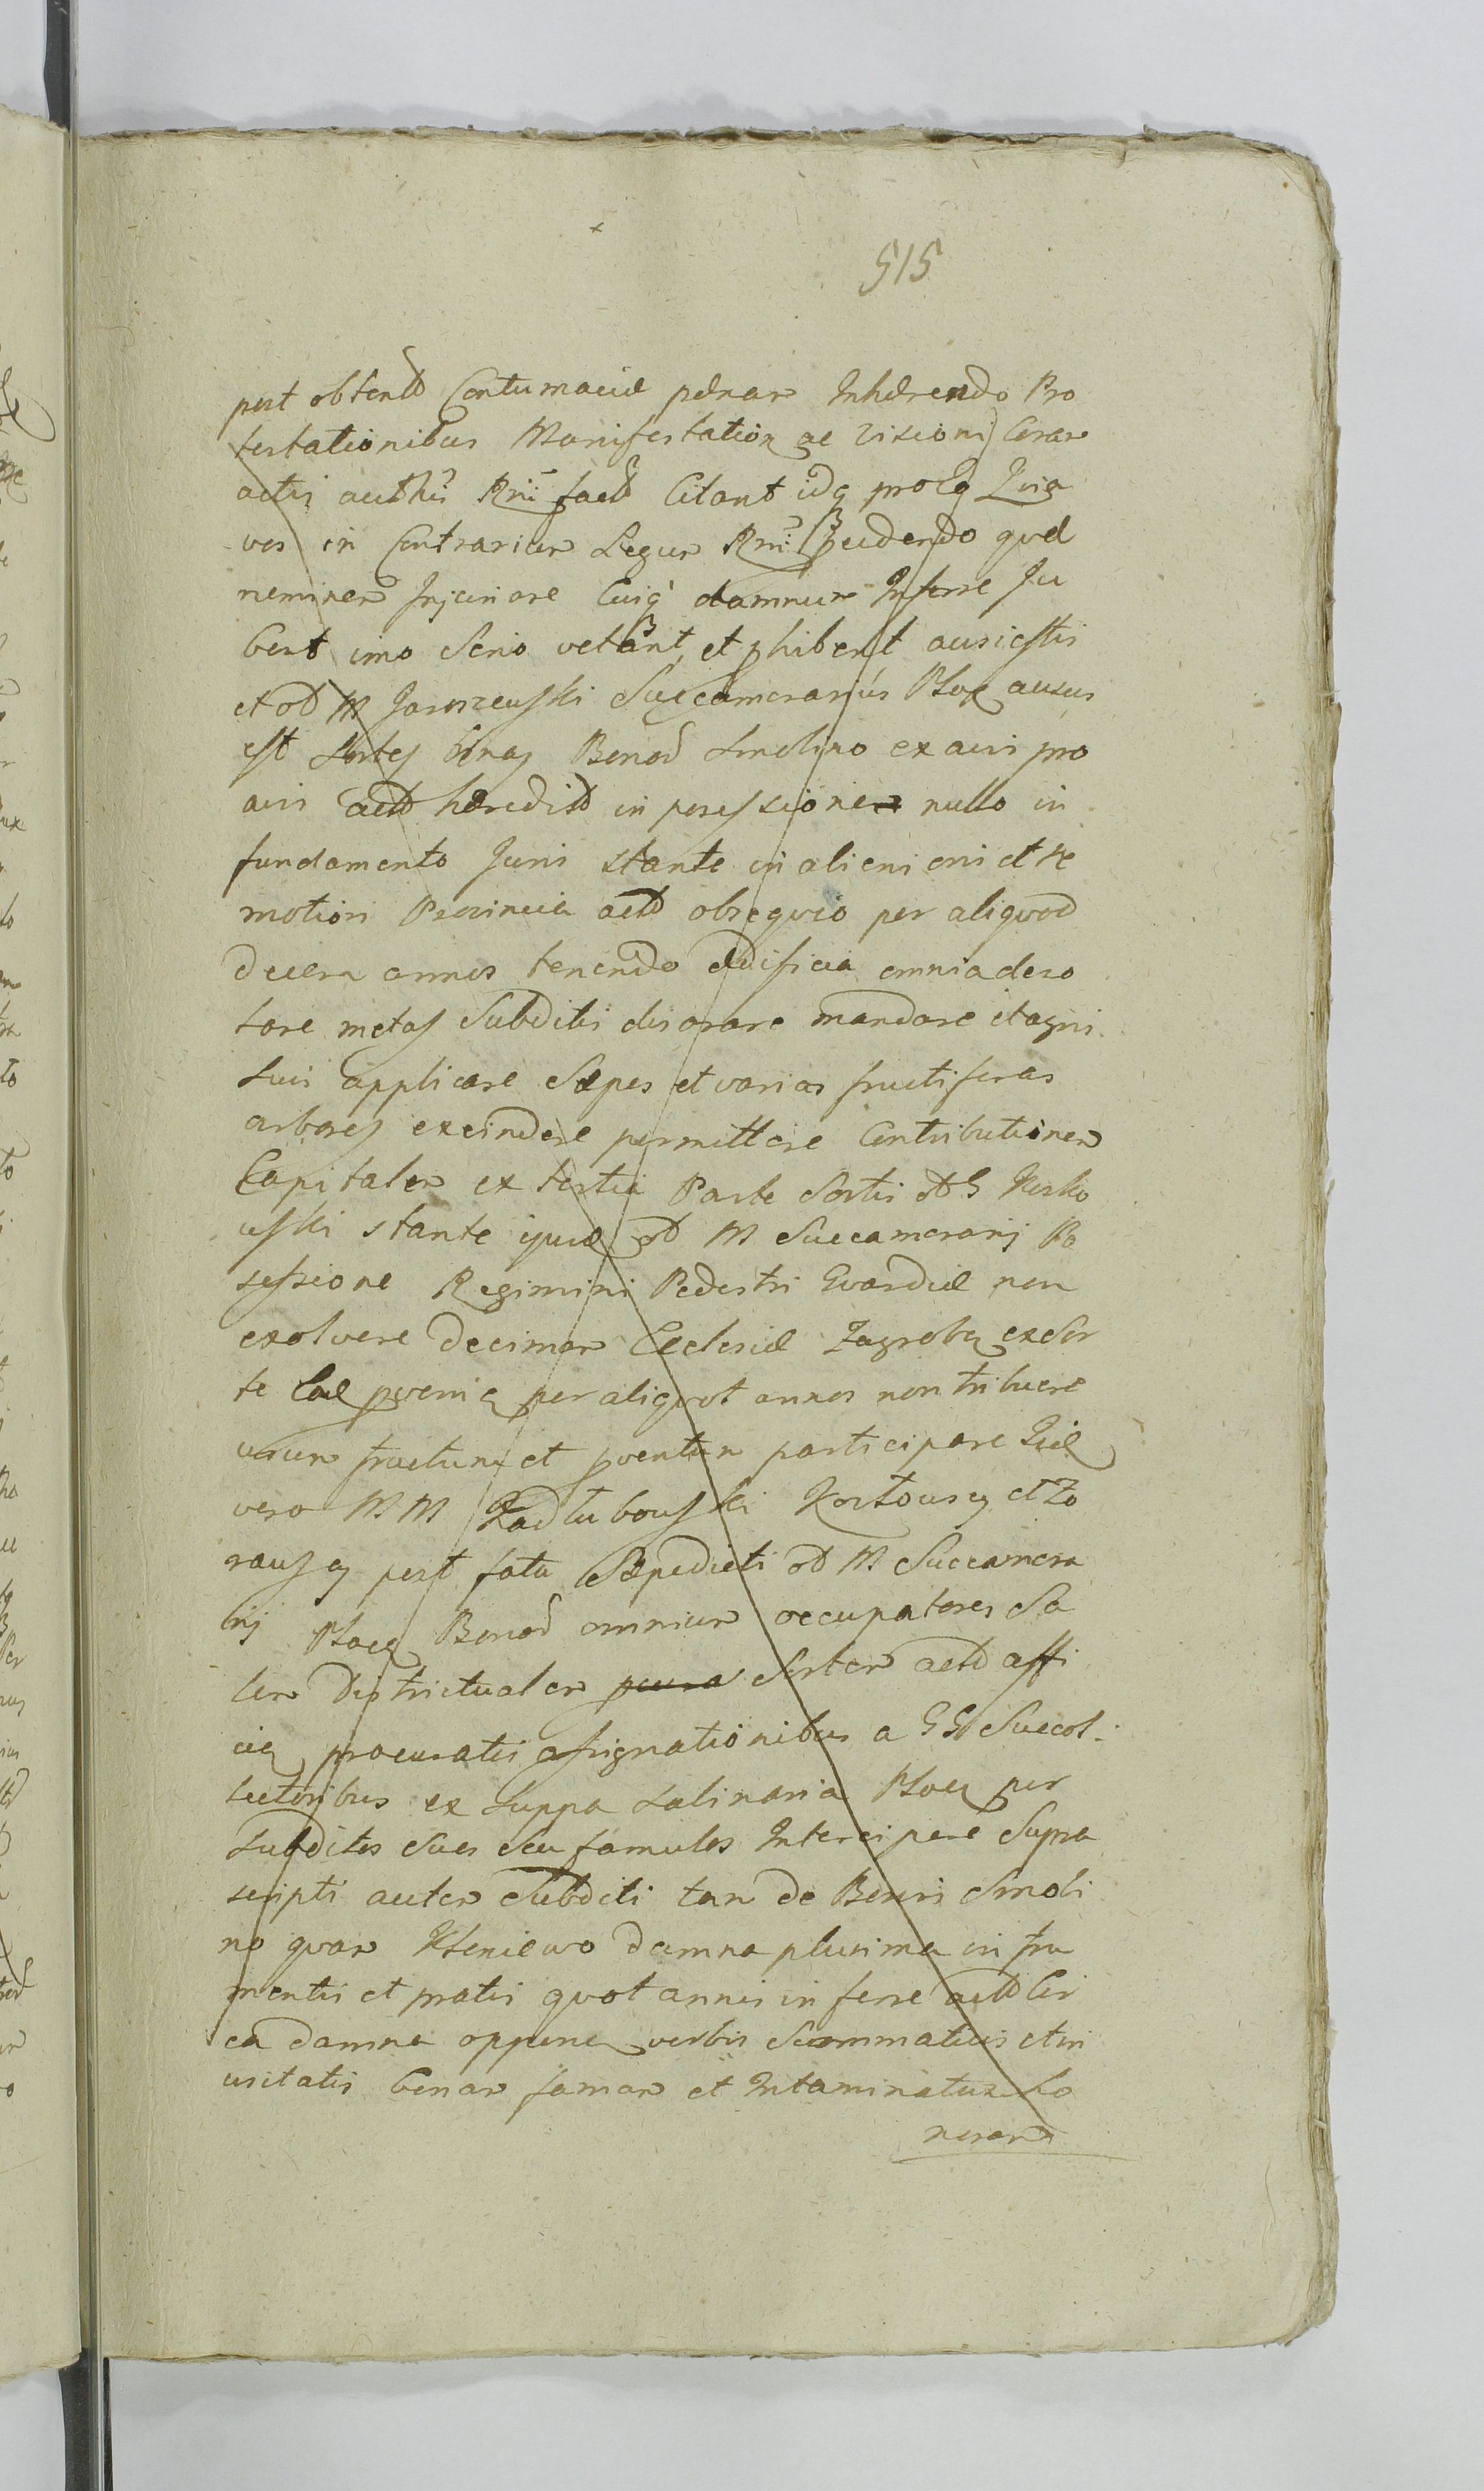 515
post obtent Contumaciæ pænam Inhærendo Pro
testationibus Manifestation ac Visioni Coram
actis authis Rni fact Citant idq
vos in Contrarium Legum Rni procedendo quæ
neminem Injuriare Cuiq damnum Inferre Ju
bent imo Serio vetant et prohibent ausi estis
et od M Jaroszewski Succamerarius Ploc ausus
est Sortes binas Bonor Smolino ex avis pro
avis act hæredit in possessione nullo in
fundamento Juris stante in alieni oni et re
motiori Provincia act obsequio per aliquod
decem annos tenendo ædificia omnia deso
lare metas Subditis disarare mandare et agris
suis applicare Sæpes et varias fructiferas
arbores exeindere permittere Contributionem
Capitalem ex tertia Parte Sortis od G
uski stante ejusd od M Succamerarij Po
sessione Regimini Pedestri Gvardiæ non
exolvere Decimam Ecclesiæ Zagroba ex Sor
te per aliquot annos non tribuere
usum fructum et proventum participare
vero M M Kadłubowski et Zo
rawsg post fata Sæpedicti od M Succamera
rij Ploce Bonor omnium occupatores Sa
lem Districtualem Sortem act affi
procuratis assignationibus a GG Succol-
lectoribus ex Suppa Salinaria Ploce per
Subditos Suos Seu famulos Intercipere Supra
scripti autem Subditi tam de Bonis Smoli
no quam damna plurima in fru
mentis et pratis quot annis inferre act Cir
ca damna verbis Scommaticis et in
usitatis bonam famam et Intaminatum ho
norem